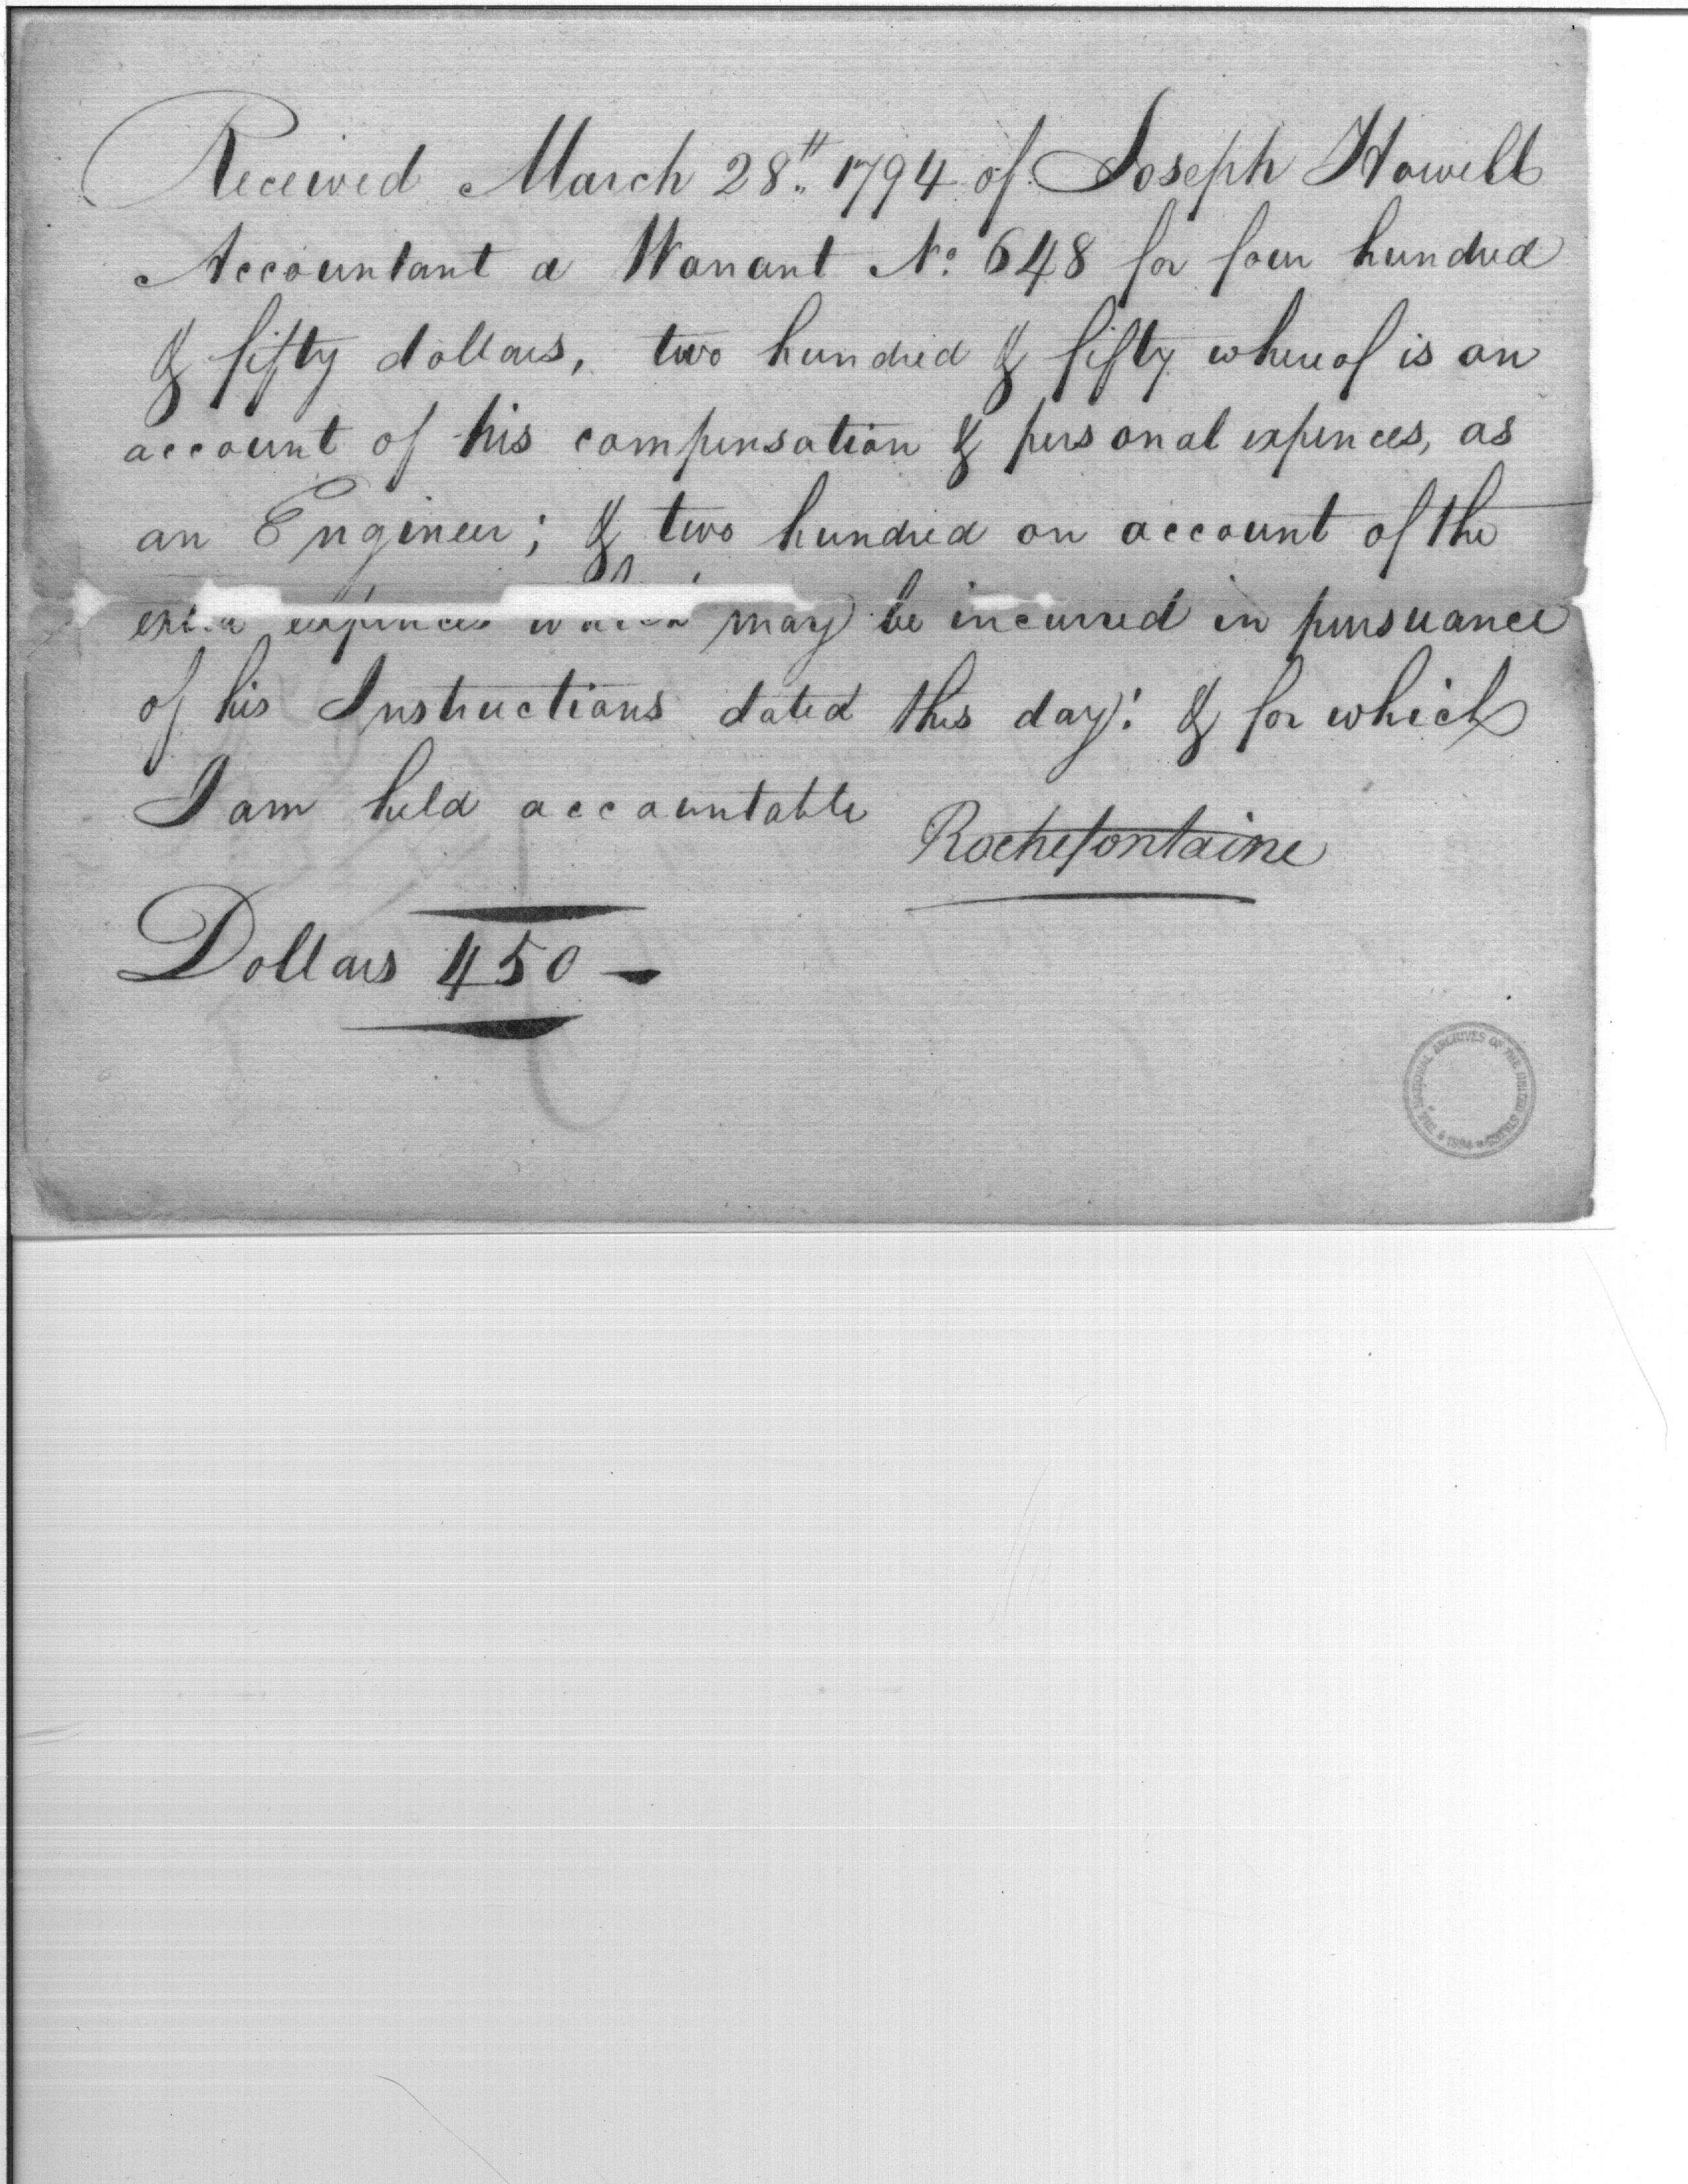 Received March 28th 1794 of Joseph Howell
Accountant a Warrant No. 648 for four hundred
& fifty dollars, two hundred & fifty whereof is on
account of his compensation & personal expences, as
an Engineer; & two hundred on account of the
extra expences which may be incurred in pursuance
of his Instructions dated this day: & for which
I am held accountable
Rochefontaine
Dollars 450 —
THE NATIONAL ARCHIVES OF THE UNITED STATES 1934